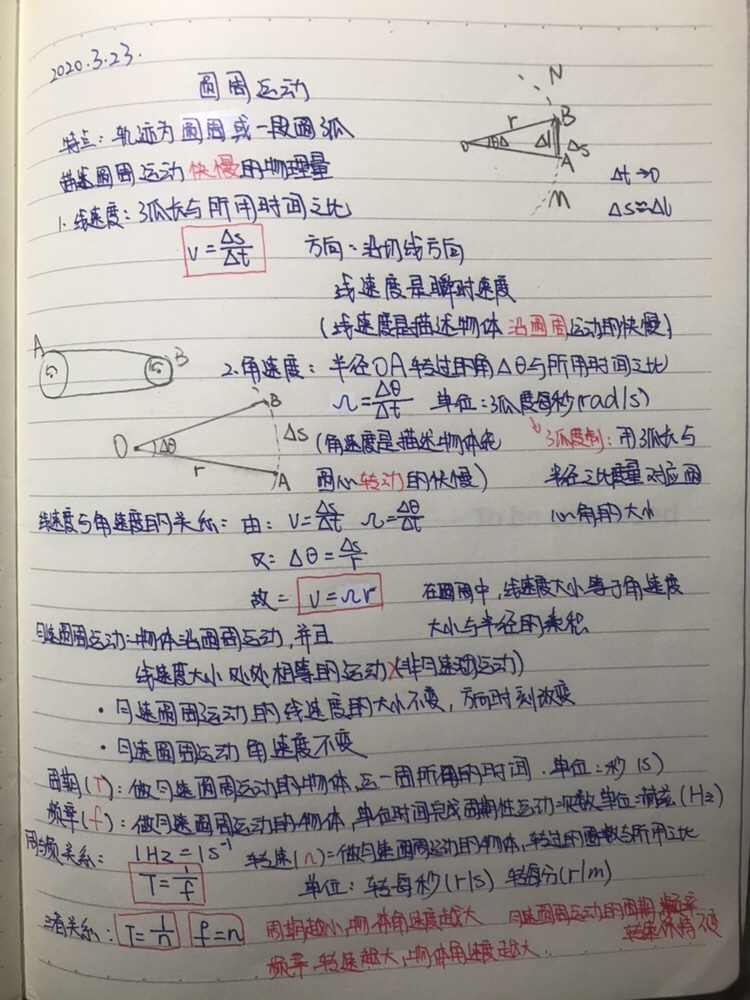 2020.3.23.
圆周运动
特点：轨迹为圆周或一段圆弧
描述圆周运动快慢的物理量
N
B
r
O
Δθ
Δl
Δs
A
M
Δt→0
Δs≈Δl
1. 线速度：弧长与所用时间之比
V=Δs/Δt
方向：沿切线方向
线速度是瞬时速度
(线速度是描述物体沿圆周运动的快慢)
A
B
2.角速度：半径OA转过的角Δθ与所用时间之比
Ω=Δθ/Δt 单位：弧度每秒(rad/s)
(角速度是描述物体绕
圆心转动的快慢)
弧度制：用弧长与
半径之比度量对应圆
心角的大小
B
O
Δθ
Δs
r
A
线速度与角速度的关系：由：V=Δs/Δt Ω=Δθ/Δt
又：Δθ=Δs/r
故：V=Ωr
在圆周中，线速度大小等于角速度
大小与半径的乘积
匀速圆周运动：物体沿圆周运动，并且
线速度大小处处相等的运动(非匀速运动)
·匀速圆周运动的线速度的大小不变，方向时刻改变
·匀速圆周运动角速度不变
周期(T)：做匀速圆周运动的物体，运一周所用的时间．单位：秒(s)
频率(f)：做匀速圆周运动的物体，单位时间完成周期性运动次数 单位：赫兹(Hz)
周与频关系：1Hz=1s⁻¹ 转速(n)：做匀速圆周运动的物体，转过的圈数与所用之比
T=1/f 单位：转每秒(r/s) 转每分(r/m)
三者关系：T=1/n f=n
周期越小，物体角速度越大
频率、转速越大，物体角速度越大．
匀速圆周运动的周期 频率
转速保持不变